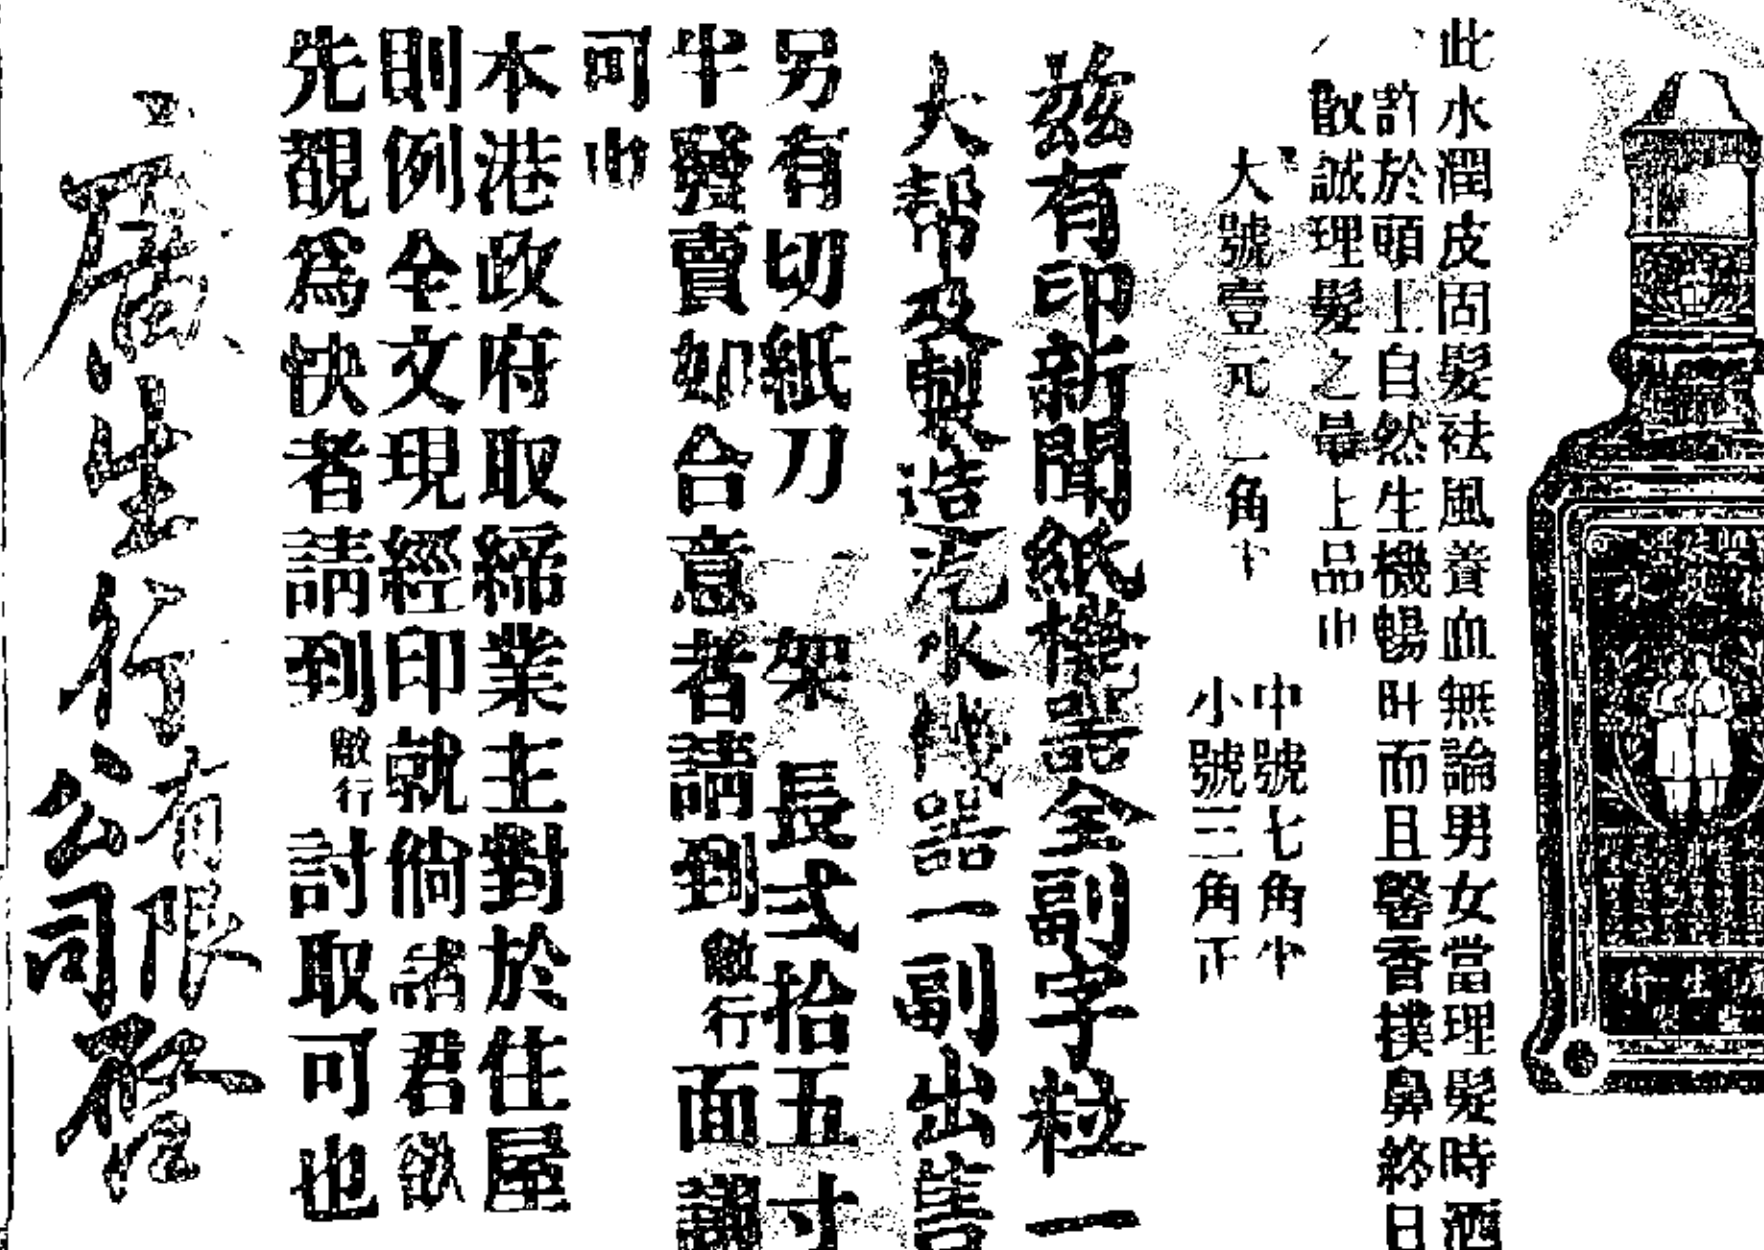 此水潤皮固髮祛風養血無論男女當理髮時洒
許於頭上自然生機暢旺而且馨香撲鼻終日
散誠理髮之最上品也
大號壹元二角半
中號七角半
小號三角正
茲有印新聞紙機器全副字粒一
大帮及製造汽水機器一副出售
另有切紙刀一架長式拾五寸
半發賣如合意者請到敝行面議
可也
本港政府取締業主對於住屋
則例全文現經印就倘諸君欲
先覩為快者請到敝行討取可也
廣生行有限公司啓
行生廣